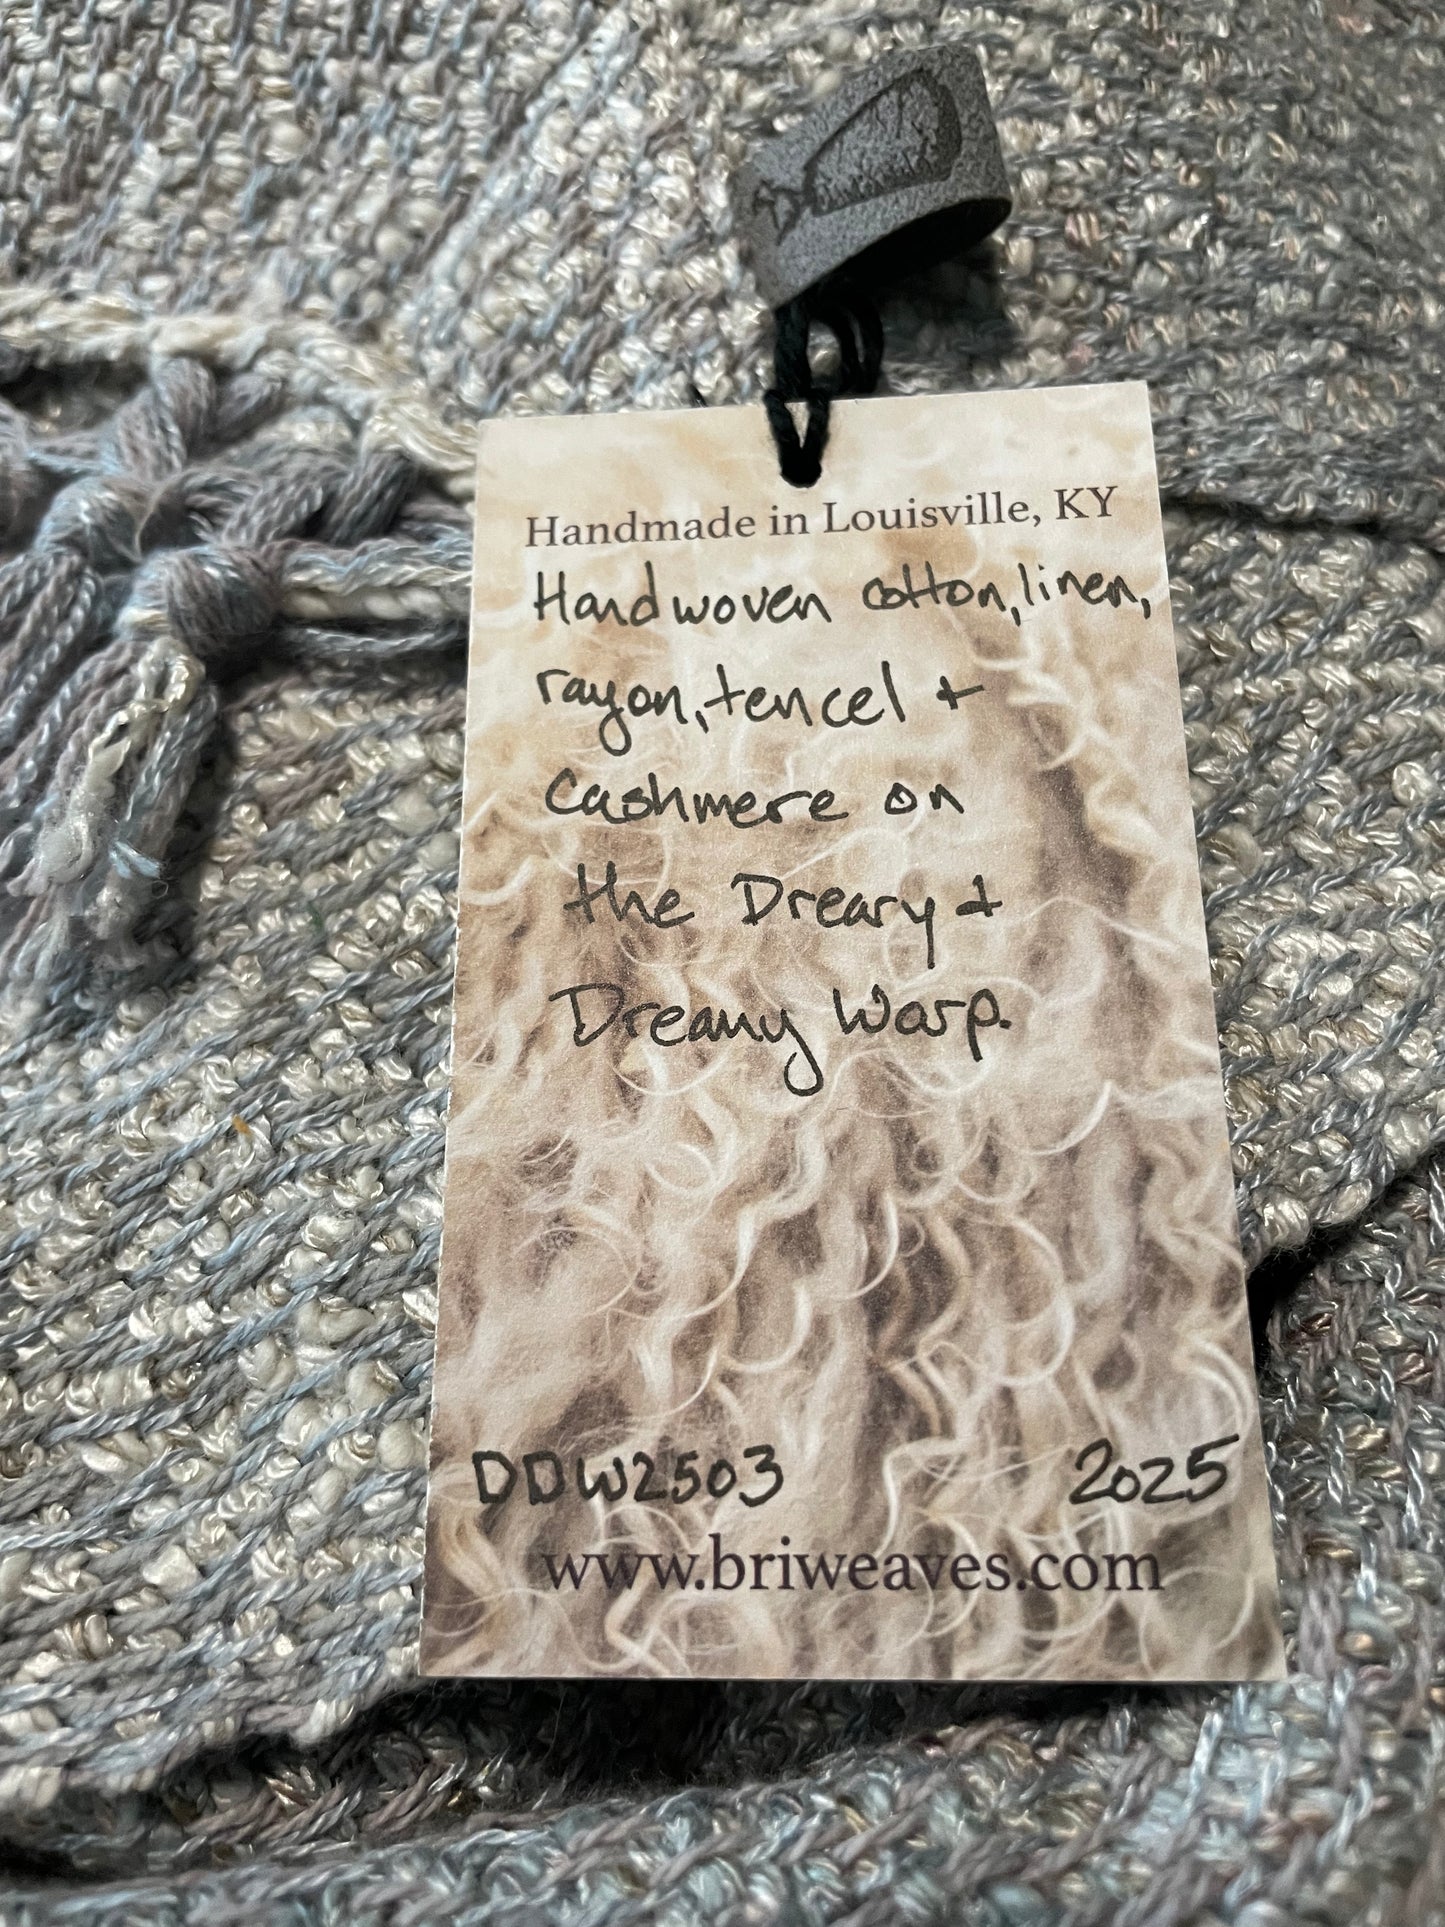 Handmade in Louisville, KY
Handwoven cotton, linen,
rayon, tencel +
Cashmere on
the Dreary +
Dreamy Warp.
DDW2503 2025
www.briweaves.com